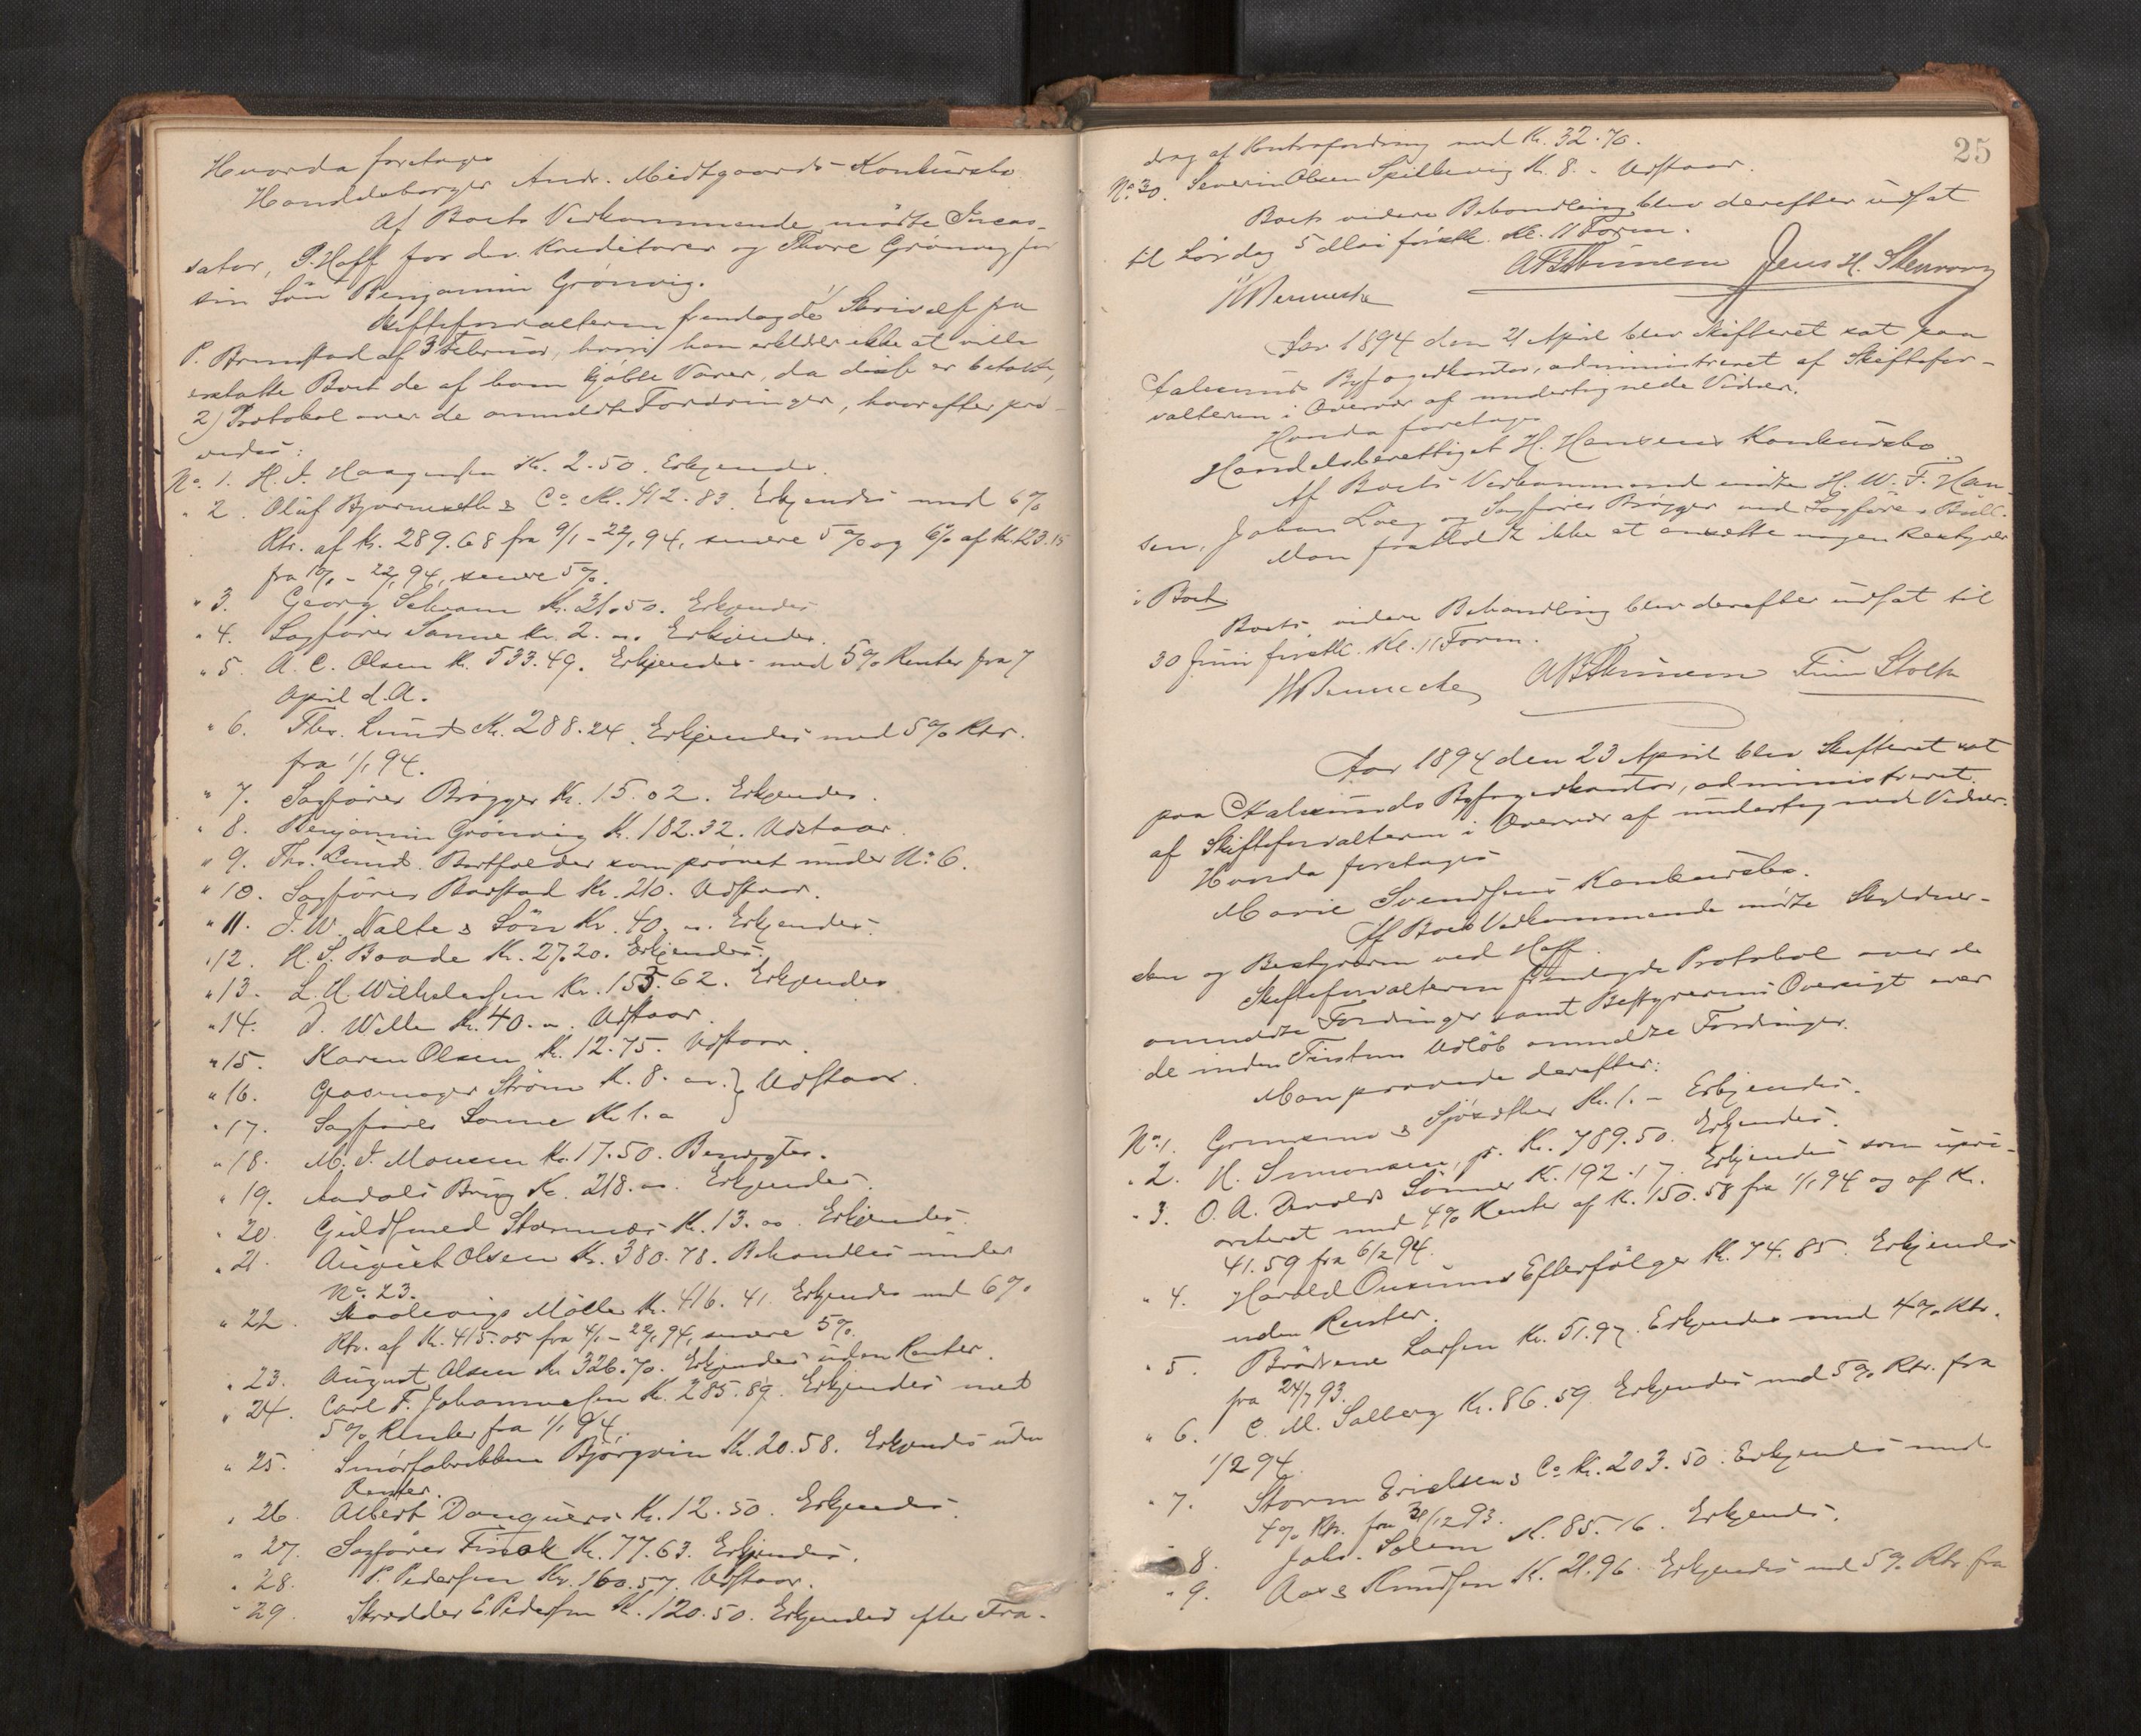 Hvorda foretages
Handelsborger Andr. Midtgaards Konkursbo
Af Boets Vedkommende mødte Incas-
sator P. Hoff for div. Kreditorer og Thore Grønvig for
sin Søn Benjamin Grønvig.
Skifteforvalteren fremlagde 1/ Skrivelse fra
P. Brunstad af 3 Februar, hvori han erklærer ikke at ville
erstatte Boet de af ham kjøbte Varer, da disse er betalte,
2) Protokol over de anmeldte Fordringer, hvorefter prø-
vedes:
No. 1. H. J. Haagensen Kr. 2.50. Erkjendes.
" 2. Oluf Bjørnseth & Co Kr. 412.83. Erkjendes med 6%
Rtr. af Kr. 289.68 fra 9/1 - 22/1 94, senere 5% og 6% af Kr. 123.15
fra 10/1 - 22/1 94, senere 5%.
" 3. Georg Schram Kr. 31.50. Erkjendes
" 4. Sagfører Sonne Kr. 2. " Erkjendes.
" 5. A. C. Olsen Kr. 533.49. Erkjendes med 5% Renter fra 7
April d.A.
" 6. Ths. Lund Kr. 288.24. Erkjendes med 5% Rtr.
fra 1/1 94.
" 7. Sagfører Brøgger Kr. 15.02. Erkjendes.
" 8. Benjamin Grønvig Kr. 182.32. Udstaar.
" 9. Ths. Lund. Bortfalder som prøvet under No. 6.
" 10. Sagfører Barstad Kr. 210. Udstaar.
" 11. J. W. Nalte & Søn Kr. 40. " Erkjendes.
" 12. H. S. Baade Kr. 27.20. Erkjendes.
" 13. L. U. Wilhelmsen Kr. 155.62. Erkjendes
" 14. J. Wille Kr. 40. " Udstaar.
" 15. Karen Olsen Kr. 12.75. Udstaar.
" 16. Strøm Kr. 8. " } Udstaar.
" 17. Sagfører Sonne Kr. 1. "
" 18. M. J. Monsen Kr. 17.50. Benægtes.
" 19. Aandals Brug Kr. 218. " Erkjendes.
" 20. Guldsmed Stormnæs Kr. 13. " Erkjendes.
" 21. August Olsen Kr. 380.78. Behandles under
No. 23.
" 22. Skodevigs Mølle Kr. 416.41. Erkjendes med 6%
Rtr. af Kr. 415.05 fra 4/1 - 22/1 94, senere 5%.
" 23. August Olsen Kr. 326.70. Erkjendes uden Renter.
" 24. Carl F. Johannessen Kr. 285.89. Erkjendes med
5% Renter fra 1/1 94.
" 25. Smørfabrikken Bjørgvin Kr. 20.58. Erkjendes uden
Renter.
" 26. Albert Danquers Kr. 12.50. Erkjendes.
" 27. Sagfører Kr. 77.63. Erkjendes.
" 28. P. Pedersen Kr. 160.57. Udstaar.
" 29. Skrædder E. Pedersen Kr. 120.50. Erkjendes efter Fra-
25
drag af Kontrafordring med Kr. 32.70.
No. 30. Severin Olsen Spilkevig Kr. 8. - Udstaar.
Boets videre Behandling blev derefter udsat
til Lørdag 5 Mai førstk. Kl. 11 Form.
Jens H. Stenvaag
Aar 1894 den 21 April blev Skifteret sat paa
Aalesunds Byfogedkontor, administreret af Skiftefor-
valteren i Overvær af undertegnede Vidner.
Hvorda foretages
Handelsberettiget H. Hansens Konkursbo
Af Boets Vedkommende mødte H. W. F. Han-
sen, Johan Loeg og Sagfører Brøgger ved Sagfører Bull.
Man fandt ikke at ansætte nogen Bestyrer
i Boet
Boets videre Behandling blev derefter udsat til
30 Juni førstk. Kl. 11 Form.
Finn Stoltz
Aar 1894 den 23 April blev Skifteret sat
paa Aalesunds Byfogedkontor, administreret
af Skifteforvalteren i Overvær af undertegnede Vidner.
Hvorda foretages
Marie Svendsens Konkursbo.
Af Boets Vedkommende mødte Skyldner-
sken og Bestyreren ved Hoff.
Skifteforvalteren fremlagde Protokol over de
anmeldte Fordringer samt Bestyrerens Oversigt over
de inden Fristens Udløb anmeldte Fordringer.
Man prøvede derefter:
No. 1. Kr. 1. - Erkjendes.
" 2. H. Simonsen jr. Kr. 789.50. Erkjendes.
" 3. O. A. Devolds Sønner Kr. 192.17. Erkjendes som upri-
oriteret med 4% Renter af Kr. 150.58 fra 1/1 94 og af Kr.
41.59 fra 6/2 94.
" 4. Harald Efterfølger Kr. 74.85. Erkjendes
uden Renter.
" 5. Brødrene Larsen Kr. 51.97. Erkjendes med 4% Rtr.
fra 24/7 93.
" 6. C. M. Salberg Kr. 86.59 Erkjendes med 5% Rtr. fra
1/2 94.
" 7. Storm Ericksen & Co Kr. 203.50. Erkjendes med
4% Rtr. fra 31/12 93.
8. Johs. Solem Kr. 85.16. Erkjendes.
" 9. Aas & Knudsen Kr. 21.96. Erkjendes med 5% Rtr. fra